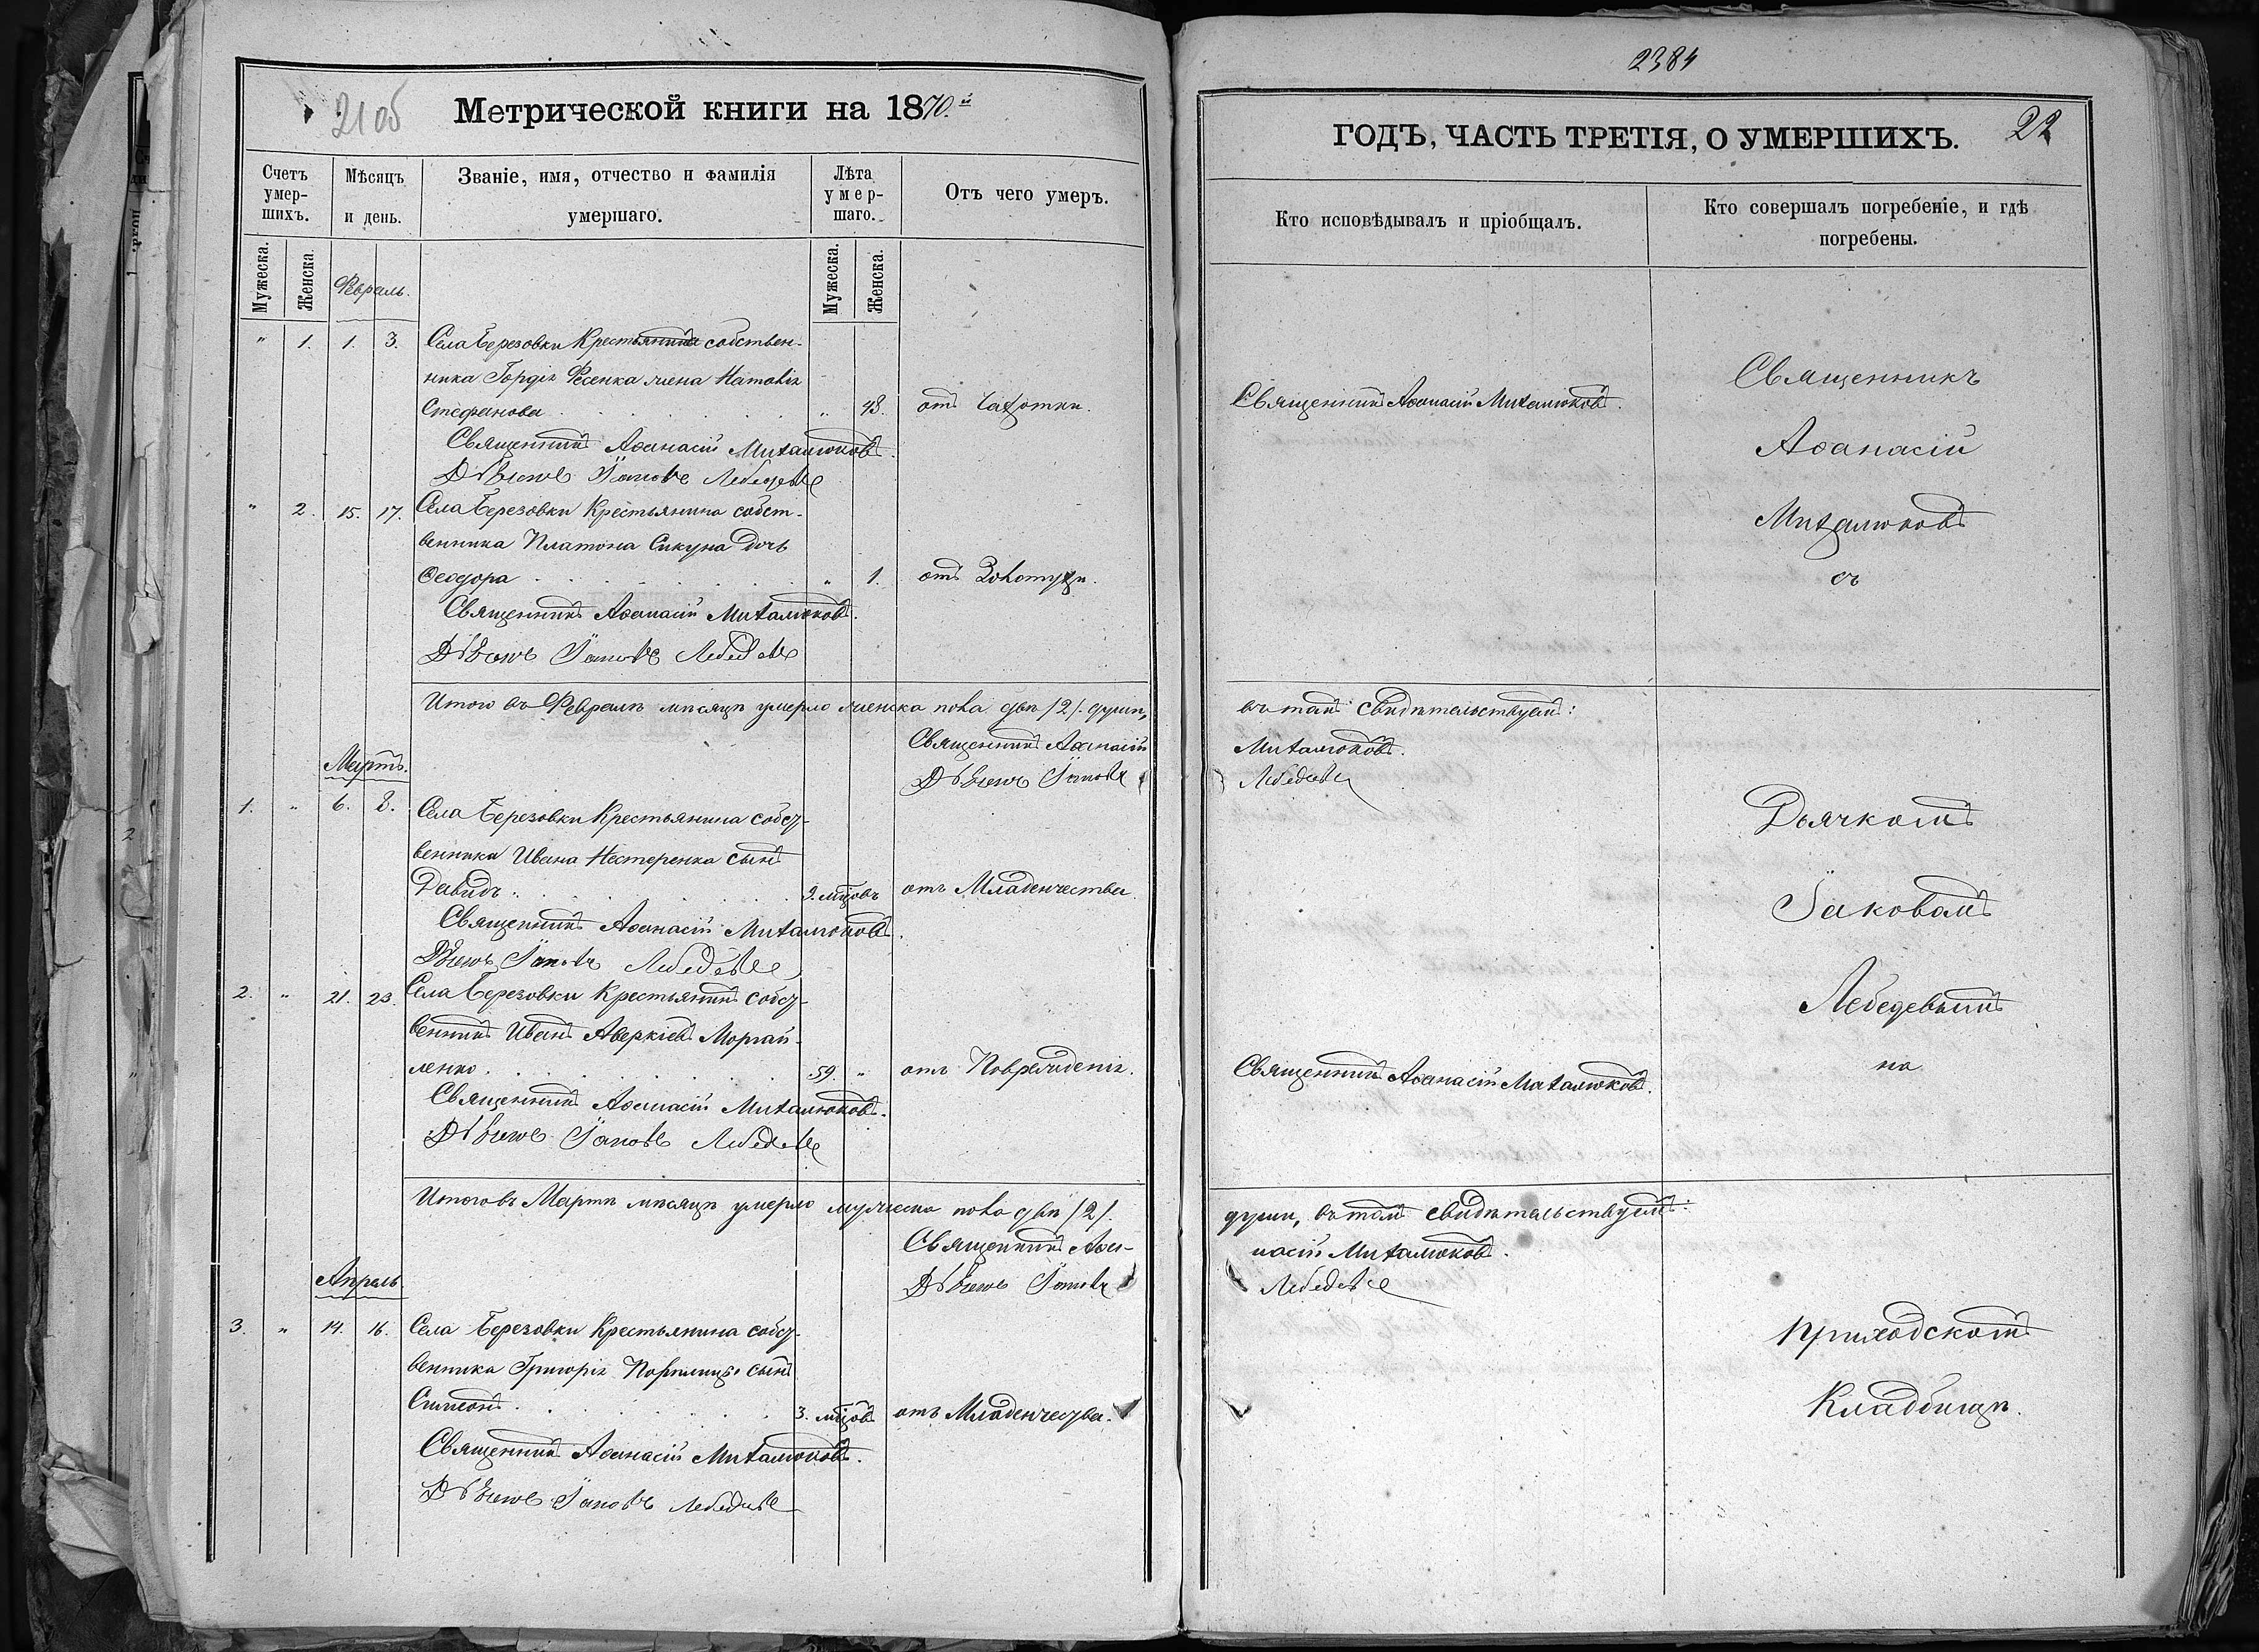 21 об
Метрической книги на 1870.й
Счетъ умершихъ.
Мѣсяцъ и день.
Званіе, имя, отчество и фамилія умершаго.
Лѣта умершаго.
Отъ чего умеръ.
Мужеска.
Женска.
Февраль.
Мужеска.
Женска.
" 1. 1. 3. Села Березовки Крестьянина собствен-
ника Гордія Фесенка жена Наталія
Стефанова " 48. отъ Чахотки.
Священникъ Афанасій Михалюковъ.
Дьячекъ Іаковъ Лебедевъ
" 2. 15. 17. Села Березовки Крестьянина собст-
венника Платона Сикуна дочь
Феодора " 1. отъ Золотухи.
Священникъ Афанасій Михалюковъ.
Дьячекъ Іаковъ Лебедевъ
Итого въ Февралѣ мѣсяцѣ умерло женска пола двѣ /2/. души,
Священникъ Афанасій
Дьячекъ Іаковъ
Мартъ.
1. " 6. 8. Села Березовки Крестьянина собст-
венника Ивана Нестеренка сынъ
Давидъ. мцовъ отъ Младенчества.
Священникъ Афанасій Михалюковъ.
Дьячекъ Іаковъ Лебедевъ
2. " 21. 23. Села Березовки Крестьянинъ собст-
венникъ Иванъ Аверкіевъ Моргай-
ленко. 59. " отъ Поврежденія.
Священникъ Афанасій Михалюковъ.
Дьячекъ Іаковъ Лебедевъ
Итого въ Мартѣ мѣсяцѣ умерло мужеска пола двѣ /2/.
Священникъ Афа-
Дьячекъ Іаковъ
Апрель.
3. " 14. 16. Села Березовки Крестьянина собст-
венника Григорія сынъ
Симеонъ. 3. мцовъ отъ Младенчества.
Священникъ Афанасій Михалюковъ.
Дьячекъ Іаковъ Лебедевъ
2384
ГОДЪ, ЧАСТЬ ТРЕТІЯ, О УМЕРШИХЪ.
22
Кто исповѣдывалъ и пріобщалъ.
Кто совершалъ погребеніе, и гдѣ погребены.
Священникъ Афанасій Михалюковъ.
Священникъ
Афанасій
Михалюковъ
съ
въ томъ свидѣтельствуемъ:
Михалюковъ.
Лебедевъ
Дьячкомъ
Іаковомъ
Лебедевымъ
на
Священникъ Афанасій Михалюковъ.
души, въ томъ свидѣтельствуемъ:
насій Михалюковъ.
Лебедевъ
приходскомъ
Кладбищѣ.